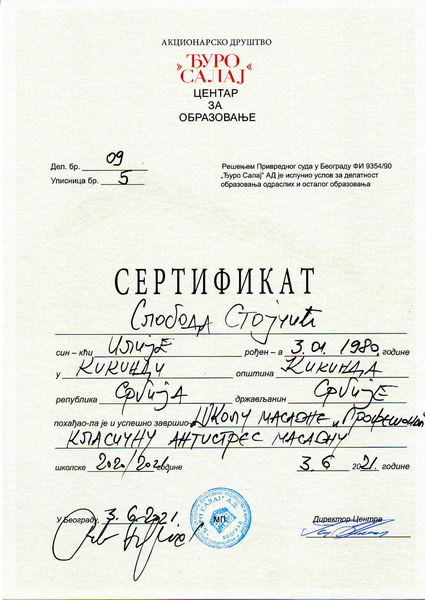 АКЦИОНАРСКО ДРУШТВО
„ЂУРО
САЛАЈ“
ЦЕНТАР
ЗА
ОБРАЗОВАЊЕ
Дел. бр. 09
Уписница бр. 5
Решењем Привредног суда у Београду ФИ 9354/90
„Ђуро Салај“ АД је испунио услов за делатност
образовања одраслих и осталог образовања
СЕРТИФИКАТ
Слобода Стојчић
син – кћи Илије рођен – а 3.01 1980 године
у Кикинди општина Кикинда
република Србија држављанин Србије
похађао-ла је и успешно завршио Школу масаже и
класичну антистрес масажу
школске 2020/2021 године 3.6 2021. године
У Београду, 3.6.2021
МП.
Директор Центра